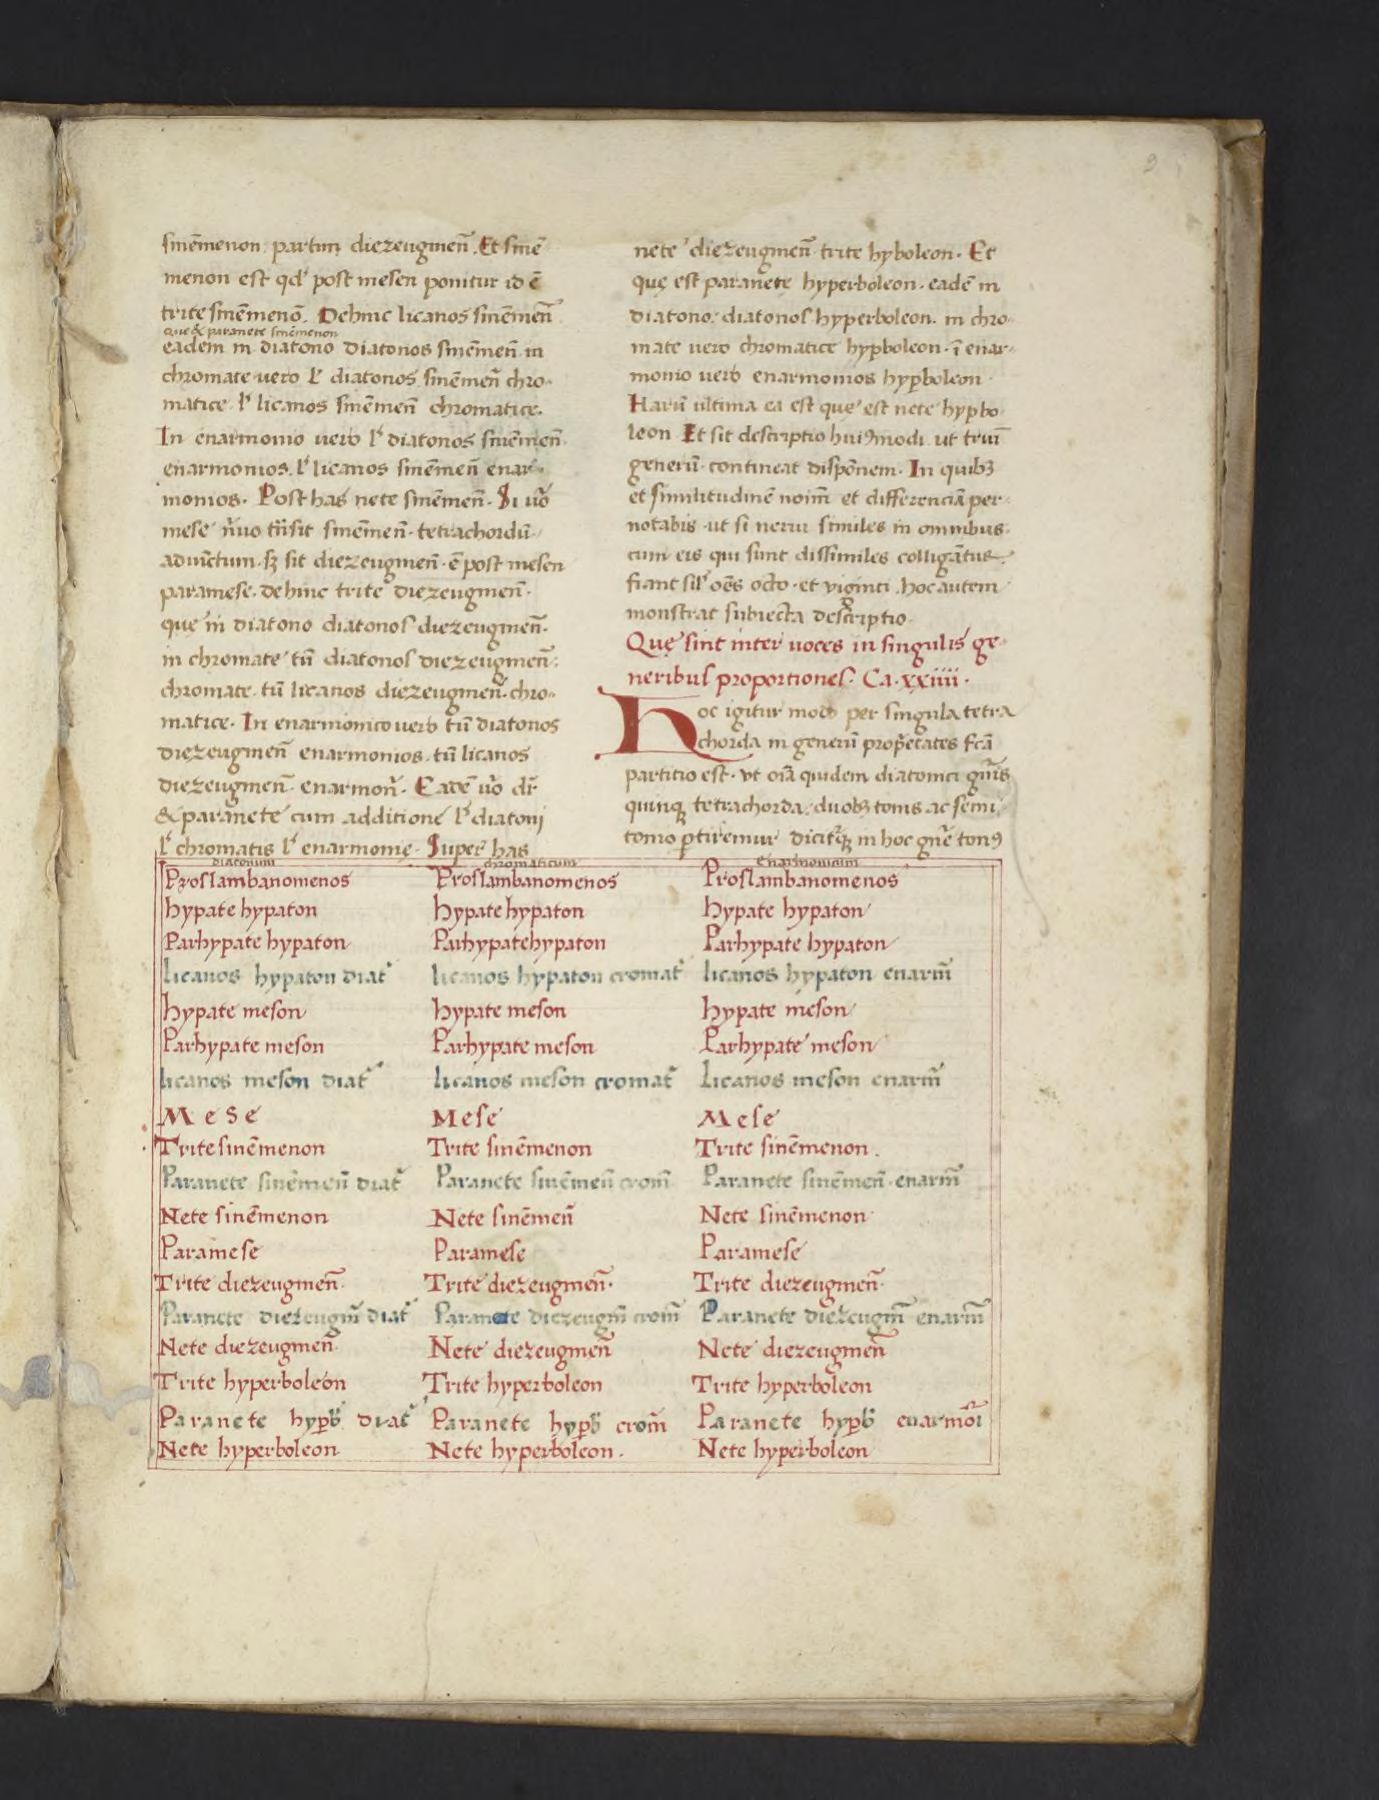 9
sinēmenon partim diezeugmen̄. Et sinē
menon est qđ post mesen ponitur id ē
trite sinēmenō. Dehinc licanos sinēmen̄
que & paranete sinēmenon
eadem in diatono diatonos sinēmen̄ in
chromate vero ł diatonos sinēmen̄ chro-
matice ł licanos sinēmen̄ chromatice.
In enarmonio uero ł diatonos sinēmen̄
enarmonios. ł licanos sinēmen̄ enar-
monios. Post has nete sinēmen̄. Si uo
mese sinēmen̄. tetrachordū
adiunctum. sit diezeugmen̄. ē post mesen
paramese. dehinc trite diezeugmen̄.
que in diatono diatonos diezeugmen̄.
in chromate tū diatonos diezeugmen̄:
chromate. tū licanos diezeugmen̄. chro-
matice. In enarmonico uero tū diatonos
diezeugmen̄ enarmonios. tū licanos
diezeugmen̄. enarmon̄. Eadē uo dr̄
& paranete cum additione ł diatoni
ł chromatis ł enarmonię. Super has
nete diezeugmen̄ trite hyboleon. Et
quę est paranete hyperboleon. eadē in
diatono. diatonos hyperboleon. in chro-
mate uero chromatice hypboleon. ī enar-
monio uero enarmonios hypboleon
Harū ultima ea est que est nete hypbo
leon Et sit descriptio huiꝰmodi ut triū
generū contineat disponem. In quibꝫ
et similitudinē noīm et differenciā per-
notabis ut si nerui similes in omnibus
cum eis qui sunt dissimiles colligantur.
fiant sił oēs octo. et viginti. hoc autem
monstrat subiecta descriptio.
Quę sint inter uoces in singulis ge-
neribus proportiones. Ca. xxiiii.
Hoc igitur modo per singula tetra
chorda in generū propetates fcā
partitio est. vt oīā quidem diatonici gn̄is
quinqꝫ tetrachorda. duobꝫ tonis ac semi
tonio ptiremur diciturqꝫ in hoc gn̄e tonꝰ
diatonum chromaticum Enarmonicum
Proslambanomenos Proslambanomenos Proslambanomenos
hypate hypaton hypate hypaton hypate hypaton
Parhypate hypaton Parhypate hypaton Parhypate hypaton
licanos hypaton diat licanos hypaton cromat licanos hypaton enarm̄
hypate meson hypate meson hypate meson
Parhypate meson Parhypate meson Parhypate meson
licanos meson diat licanos meson cromat licanos meson enarm̄
Mese Mese Mese
Trite sinēmenon Trite sinēmenon Trite sinēmenon.
Paranete sinēmen̄ diat Paranete sinēmen̄ crom̄ Paranete sinēmen̄ enarm̄
Nete sinēmenon Nete sinēmen̄ Nete sinēmenon
Paramese Paramese Paramese
Trite diezeugmen̄. Trite diezeugmen̄. Trite diezeugmen̄.
Paranete diezeugm̄ diat Paranete diezeugm̄ crom̄ Paranete diezeugm̄ enarm̄
Nete diezeugmen̄ Nete diezeugmen̄ Nete diezeugmen̄
Trite hyperboleon Trite hyperboleon Trite hyperboleon
Paranete hypb diat Paranete hypb crom̄ Paranete hypb enarmōi
Nete hyperboleon Nete hyperboleon. Nete hyperboleon